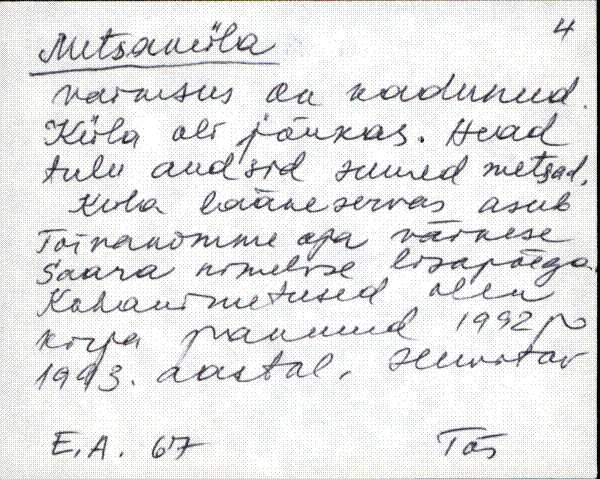 4
Metsaküla
väiksus on kadunud.
Küla oli jõukas. Head
tulu andsid suured metsad.
Küla lääneservas asub
Toivanõmme oja väikese
Saara nimelise lisajõega.
Kohanimetused olen
kirja pannud 1992 ja
1993. aastal.
E.A. 67 Tõs